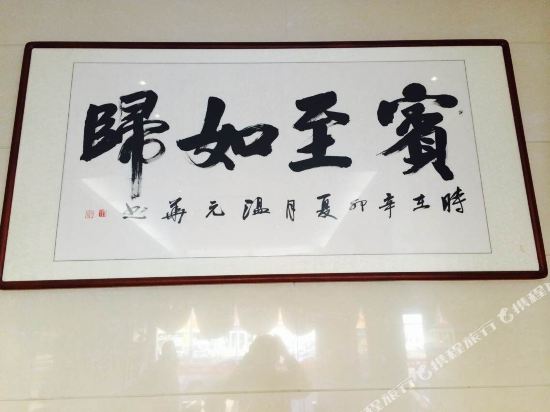 賓至如歸
時在辛卯夏月温元華书
携程旅行
携程旅行